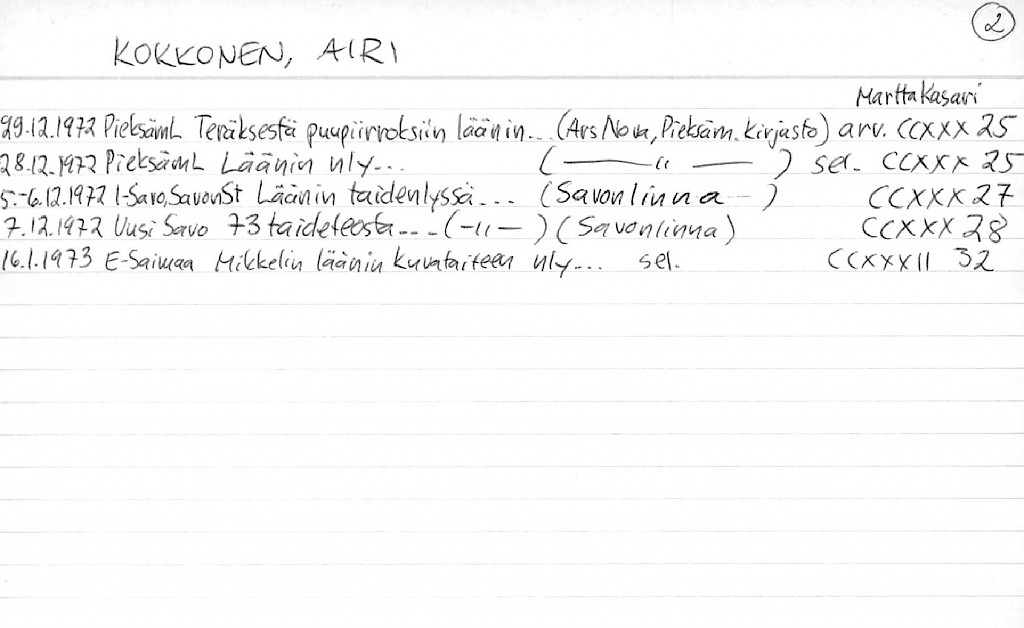 2
KOKKONEN, AIRI
Martta Kasari
29.12.1972 PieksämL Teräksestä puupiirroksiin läänin... (Ars Nova, Pieksäm. Kirjasto) arv. CCXXX 25
28.12.1972 PieksämL Läänin nly... ( —— " —— ) sel. CCXXX 25
5.-6.12.1972 I-Savo, SavonSt Läänin taidenlyssä... (Savonlinna - ) CCXXX 27
7.12.1972 Uusi Savo 73 taideteosta... (-"-) (Savonlinna) CCXXX 28
16.1.1973 E-Saimaa Mikkelin läänin kuvataiteen nly... sel. CCXXXII 32